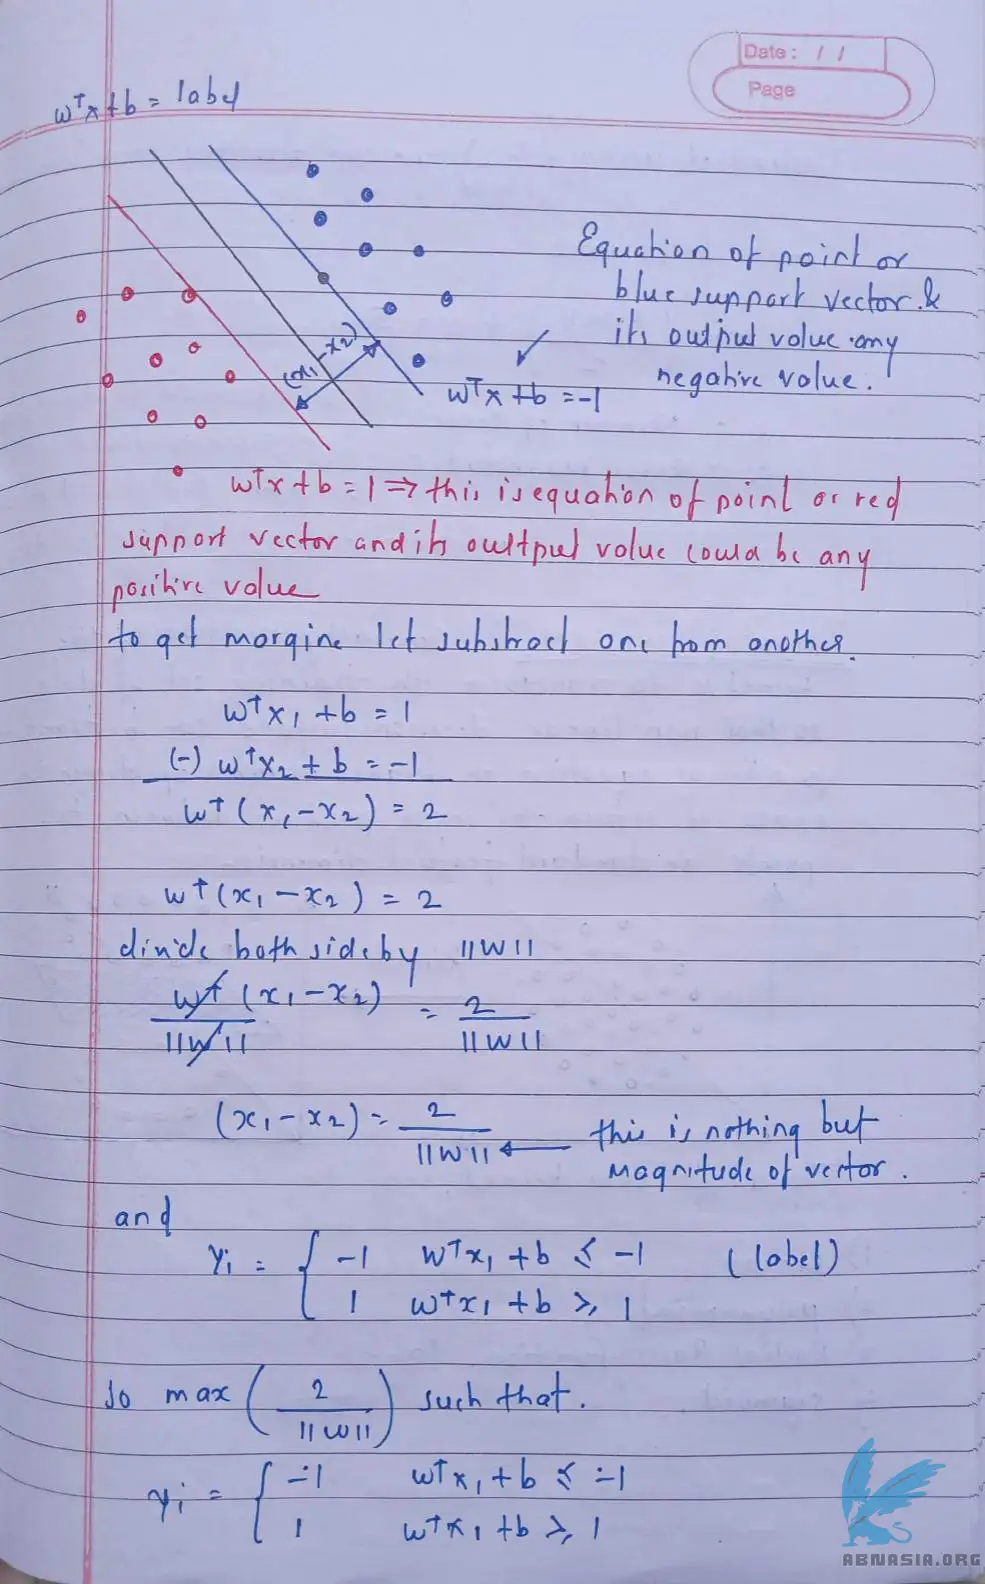 Date : / /
Page
w^T x + b = label
Equation of point or
blue support vector &
its output value any
negative value.
(x₁ - x₂)
w^T x + b = -1
w^T x + b = 1 ⇒ this is equation of point or red
support vector and its oultput value could be any
positive value
to get margine let substract one from another.
w^T x₁ + b = 1
(-) w^T x₂ + b = -1
w^T (x₁ - x₂) = 2
w^T (x₁ - x₂) = 2
divide both side by ||w||
w^T (x₁ - x₂) / ||w|| = 2 / ||w||
(x₁ - x₂) = 2 / ||w|| ← this is nothing but
magnitude of vector.
and
Yi = { -1 w^T x₁ + b ≤ -1 (label)
1 w^T x₁ + b ≥ 1
so max ( 2 / ||w|| ) such that.
yi = { -1 w^T x₁ + b ≤ -1
1 w^T x₁ + b ≥ 1
ABNASIA.ORG